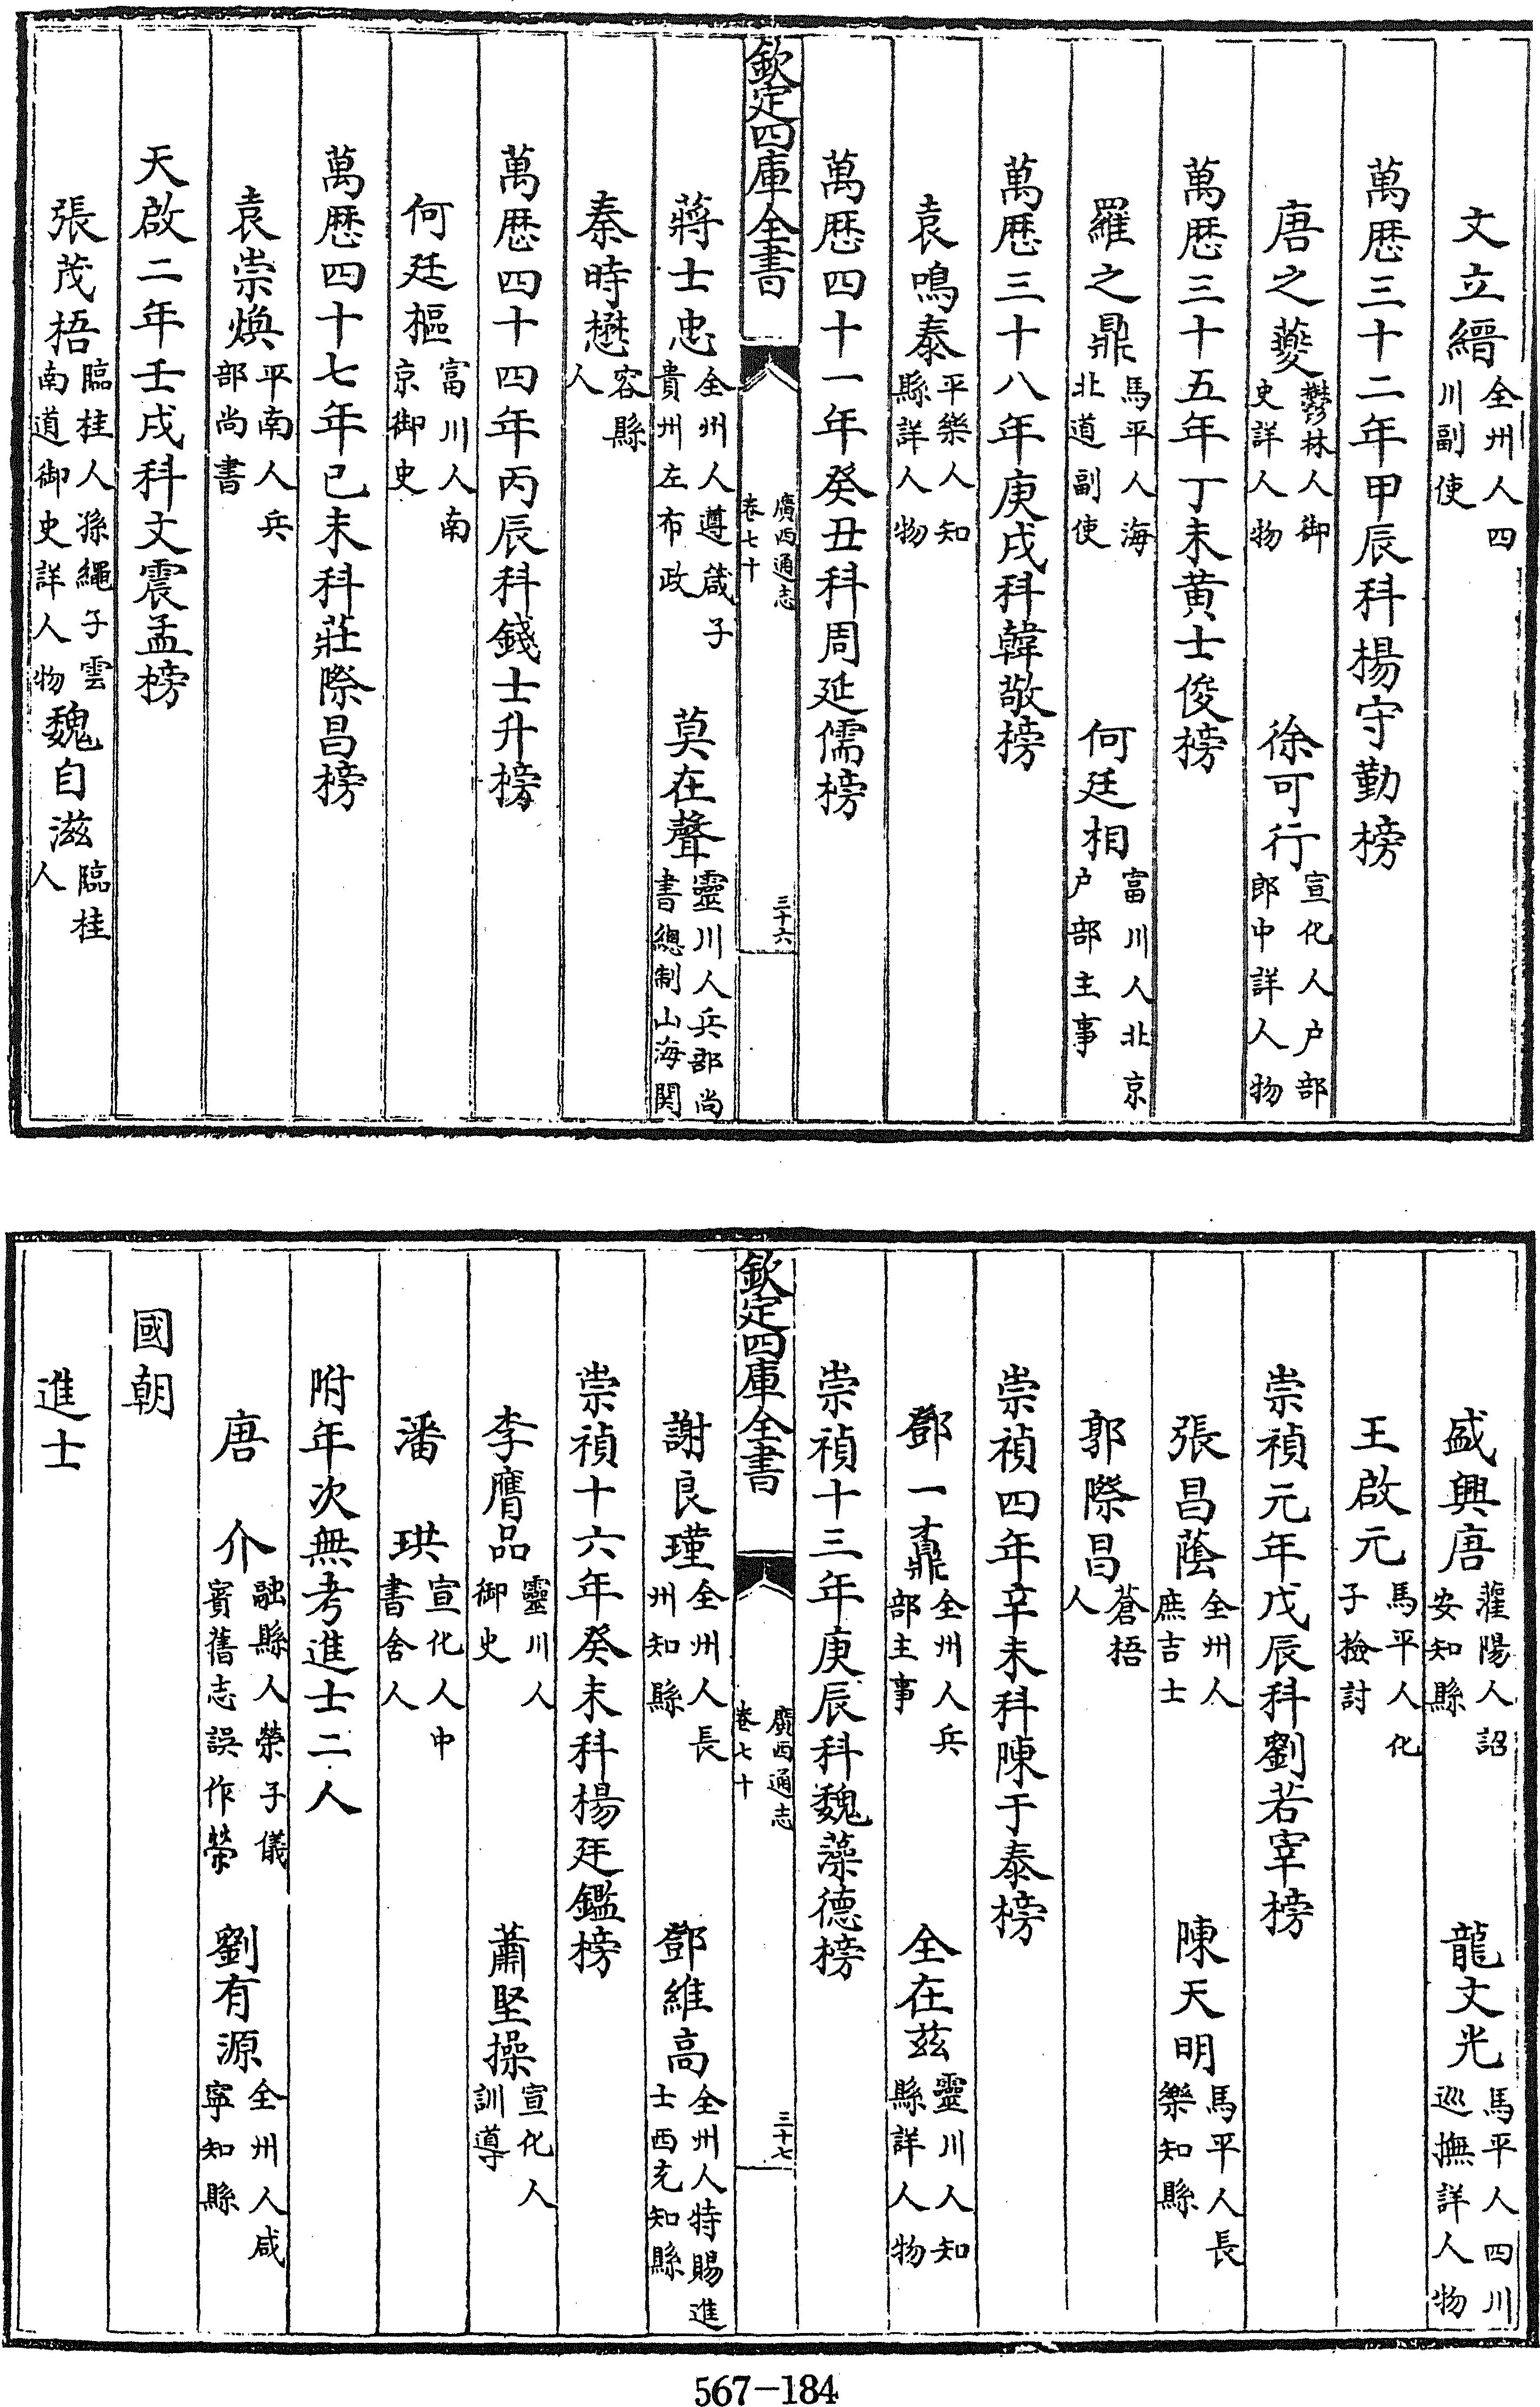 文立縉全州人四川副使
萬厯三十二年甲辰科楊守勤榜
唐之夔鬱林人御史詳人物　徐可行宣化人户部郎中詳人物
萬厯三十五年丁未黄士俊榜
羅之鼎馬平人海北道副使　何廷相富川人北京户部主事
萬厯三十八年庚戌科韓敬榜
袁鳴泰平樂人知縣詳人物
萬厯四十一年癸丑科周延儒榜
欽定四庫全書　廣西通志卷七十　三十六
蔣士忠全州人遵箴子貴州左布政　莫在聲靈川人兵部尚書總制山海関
秦時懋容縣人
萬厯四十四年丙辰科錢士升榜
何廷樞富川人南京御史
萬厯四十七年已未科莊際昌榜
袁崇煥平南人兵部尚書
天啟二年壬戌科文震孟榜
張茂梧臨桂人孫繩子雲南道御史詳人物　魏自滋臨桂人
盛興唐灌陽人詔安知縣　龍文光馬平人四川巡撫詳人物
王啟元馬平人化子檢討
崇禎元年戊辰科劉若宰榜
張昌蔭全州人庶吉士　陳天明馬平人長樂知縣
郭際昌蒼梧人
崇禎四年辛未科陳于泰榜
鄧一鼒全州人兵部主事　全在茲靈川人知縣詳人物
崇禎十三年庚辰科魏藻德榜
欽定四庫全書　廣西通志卷七十　三十七
謝良瑾全州人長州知縣　鄧維高全州人特賜進士西充知縣
崇禎十六年癸未科楊廷鑑榜
李膺品靈川人御史　蕭堅操宣化人訓導
潘珙宣化人中書舍人
附年次無考進士二人
唐介融縣人榮子儀賓舊志誤作榮　劉有源全州人咸寧知縣
國朝
進士
567-184